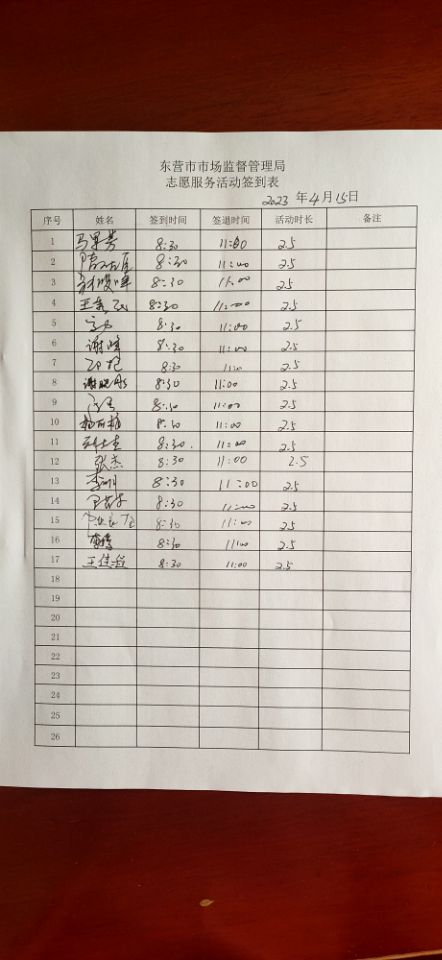 东营市市场监督管理局
志愿服务活动签到表
2023 年 4 月 15 日
序号 姓名 签到时间 签退时间 活动时长 备注
1 8:30 11:00 2.5
2 8:30 11:00 2.5
3 8:30 11:00 2.5
4 8:30 11:00 2.5
5 8:30 11:00 2.5
6 谢峰 8:30 11:00 2.5
7 8:30 11:00 2.5
8 8:30 11:00 2.5
9 8:30 11:00 2.5
10 8:30 11:00 2.5
11 8:30 11:00 2.5
12 张杰 8:30 11:00 2.5
13 8:30 11:00 2.5
14 8:30 11:00 2.5
15 8:30 11:00 2.5
16 8:30 11:00 2.5
17 8:30 11:00 2.5
18
19
20
21
22
23
24
25
26